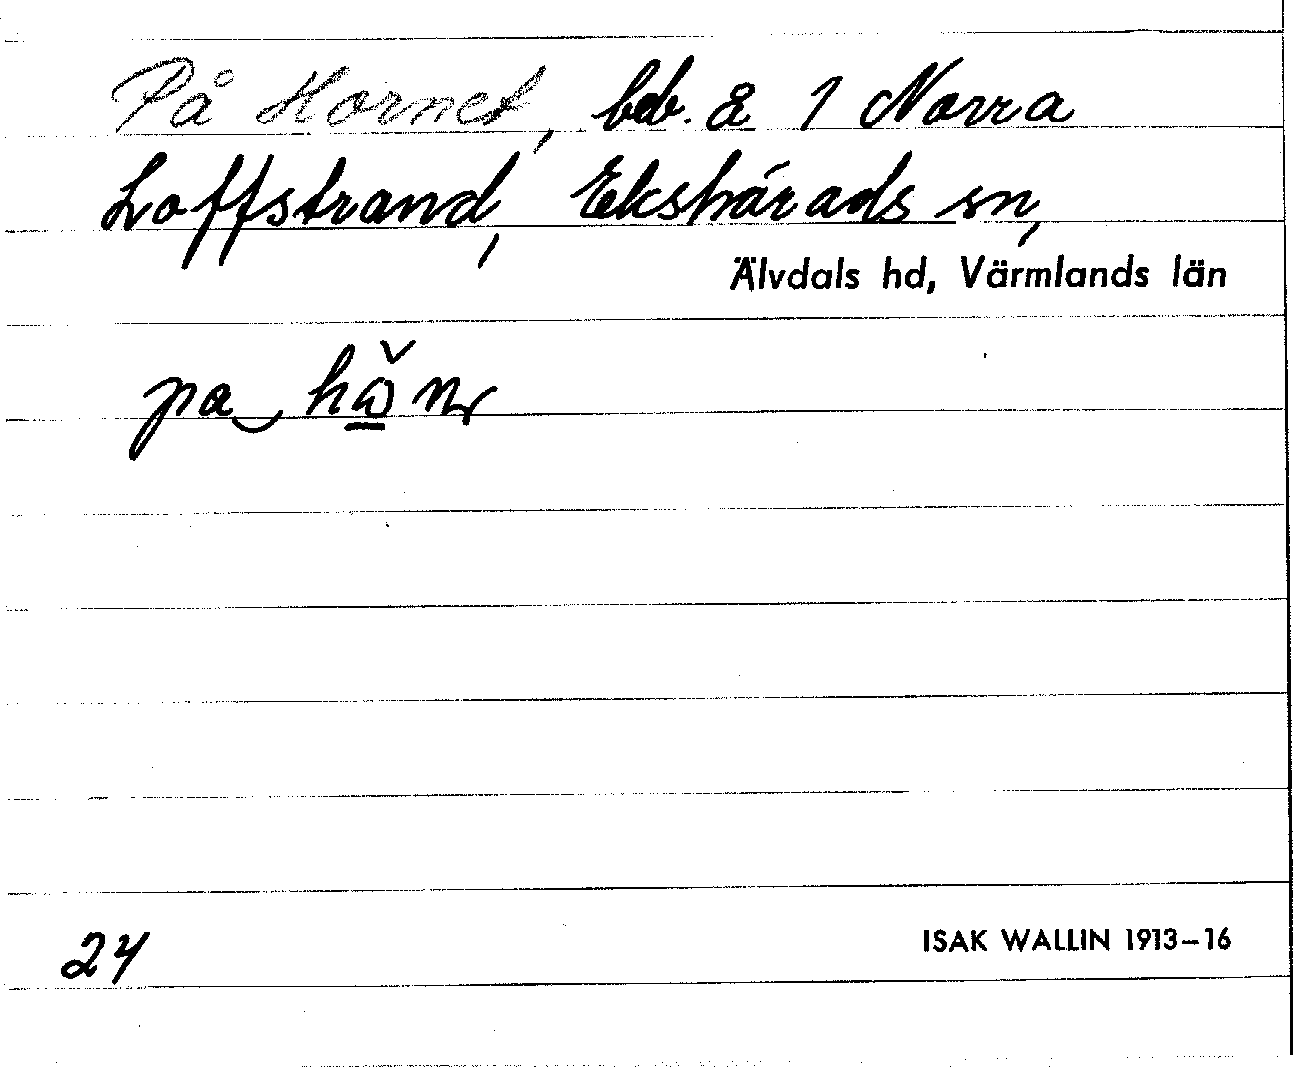 På Hornet, beb. å 1 Norra
Loffstrand, Ekshärads sn,
Älvdals hd, Värmlands län
pa
24
ISAK WALLIN 1913–16